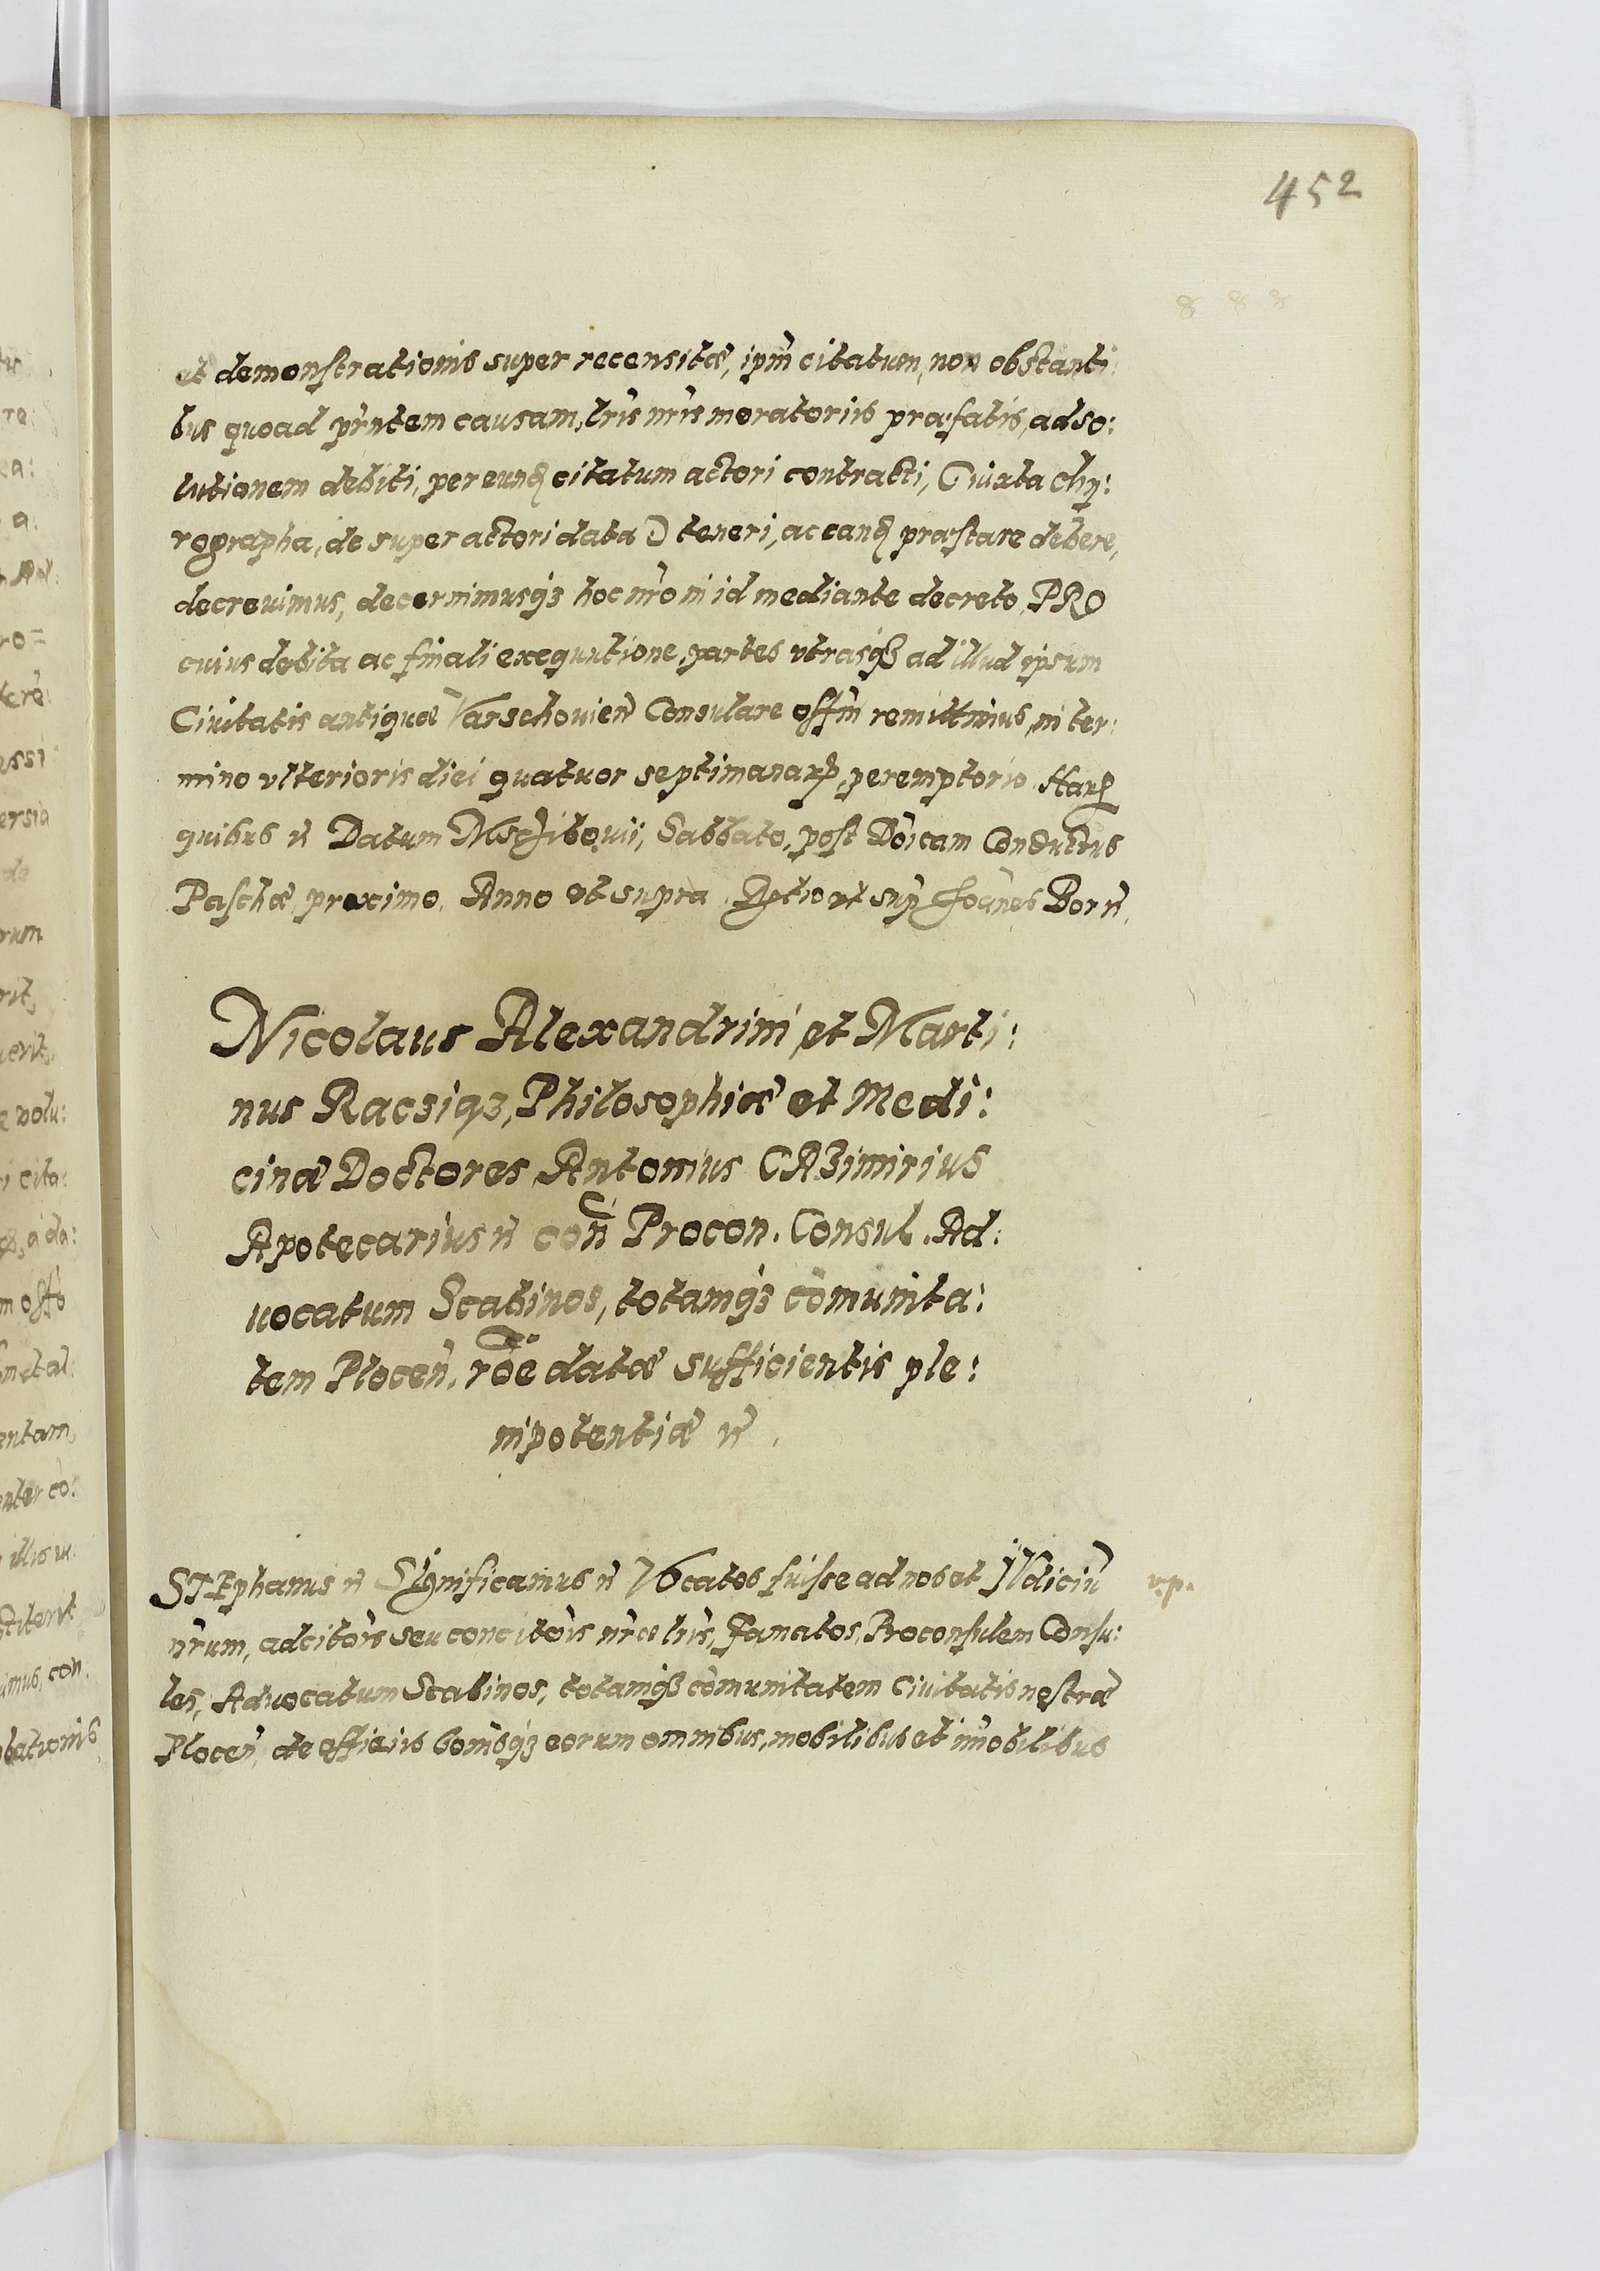 452
et demonstrationis super recensitæ, ipm̃ citatum, non obstanti:
bus quoad pr̃ntem causam, lrĩs nrĩs moratoriis præfatis, ad so:
lutionem debiti, per eunđ citatum actori contracti, (iuxta chy:
rographa, de super actori data) teneri, ac eanđ præstare debere,
decrevimus, decernimusqꝫ hoc nrõ in id mediante decreto, PRO
cuius debita ac finali exequutione, partes utrasqꝫ ad illud ipsum
Civitatis antiquæ Varschovien̄ Consulare offm̃ remittimus, in ter:
mino ulterioris diei quatuor septimanarꝝ, peremptorio. Harꝝ
quibus n̄ Datum Mschibovii, Sabbato, post Dõicam Conductus
Paschæ, proximo. Anno ut supra. Rltio ut sup̃ Joañes Bor n̄.
Nicolaus Alexandrini et Marti:
nus Racziqz, Philosophiæ et Medi:
cinæ Doctores Antonius CAZimirius
Apotecarius n̄ con̄ Procon. Consul. Ad:
vocatum Scabinos, totamqꝫ cõmunita:
tem Plocen̄. rõe datæ sufficientis ple:
nipotentiæ n̄.
STEphanus n̄ Significamus n̄ Vocatos fuisse ad nos et JVdiciũ
nr̃um, adcitõis seu concitõis nrĩs lrĩs, Famatos, Proconsulem Consu:
les, Advocatum Scabinos, totamqꝫ cõmunitatem Civitatis nostræ
Plocen̄, de officiis bonisqꝫ eorum omnibus, mobilibus et im̃obilibus
v.p.